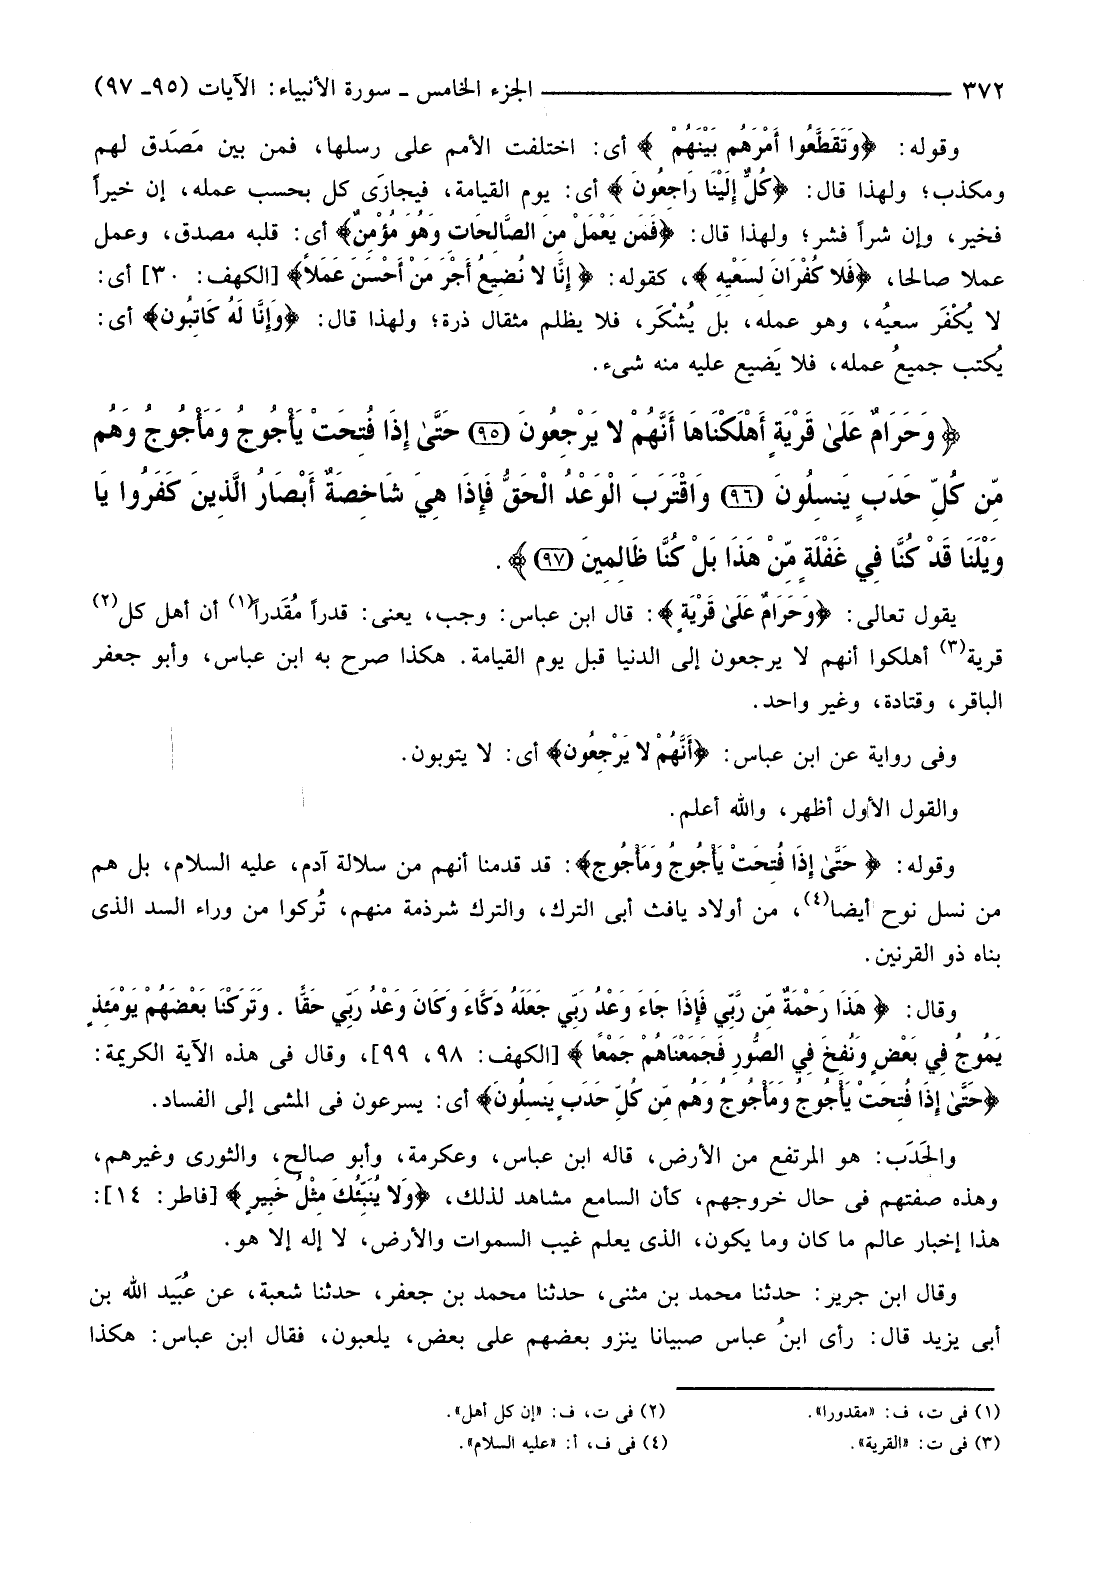 ٣٧٢ ــــــــــــــــــــ الجزء الخامس ـ سورة الأنبياء: الآيات (٩٥ـ ٩٧)
وقوله: ﴿وَتَقَطَّعُوا أَمْرَهُم بَيْنَهُمْ ﴾ أى: اختلفت الأمم على رسلها، فمن بين مَصَدق لهم
ومكذب؛ ولهذا قال: ﴿كُلٌّ إِلَيْنَا رَاجِعُونَ﴾ أى: يوم القيامة، فيجازَى كل بحسب عمله، إن خيراً
فخير، وإن شراً فشر؛ ولهذا قال: ﴿فَمَن يَعْمَلْ مِنَ الصَّالِحَاتِ وَهُوَ مُؤْمِنٌ﴾ أى: قلبه مصدق، وعمل
عملا صالحا، ﴿فَلا كُفْرَانَ لِسَعْيِهِ ﴾، كقوله: ﴿ إِنَّا لا نُضِيعُ أَجْرَ مَنْ أَحْسَنَ عَمَلاً﴾ [الكهف: ٣٠] أى:
لا يُكْفَر سعيُه، وهو عمله، بل يُشْكَر، فلا يظلم مثقال ذرة؛ ولهذا قال: ﴿وَإِنَّا لَهُ كَاتِبُون﴾ أى:
يُكتب جميعُ عمله، فلا يَضيع عليه منه شىء.
﴿ وَحَرَامٌ عَلَىٰ قَرْيَةٍ أَهْلَكْنَاهَا أَنَّهُمْ لا يَرْجِعُونَ (٩٥) حَتَّىٰ إِذَا فُتِحَتْ يَأْجُوجُ وَمَأْجُوجُ وَهُم
مِّن كُلِّ حَدَبٍ يَنسِلُونَ (٩٦) وَاقْتَرَبَ الْوَعْدُ الْحَقُّ فَإِذَا هِيَ شَاخِصَةٌ أَبْصَارُ الَّذِينَ كَفَرُوا يَا
وَيْلَنَا قَدْ كُنَّا فِي غَفْلَةٍ مِّنْ هَذَا بَلْ كُنَّا ظَالِمِينَ (٩٧) ﴾ .
يقول تعالى: ﴿وَحَرَامٌ عَلَىٰ قَرْيَةٍ ﴾: قال ابن عباس: وجب، يعنى: قدراً مُقَدراً(١) أن أهل كل(٢)
قرية(٣) أهلكوا أنهم لا يرجعون إلى الدنيا قبل يوم القيامة. هكذا صرح به ابن عباس، وأبو جعفر
الباقر، وقتادة، وغير واحد.
وفى رواية عن ابن عباس: ﴿أَنَّهُمْ لا يَرْجِعُون﴾ أى: لا يتوبون.
والقول الأول أظهر، والله أعلم.
وقوله: ﴿ حَتَّىٰ إِذَا فُتِحَتْ يَأْجُوجُ وَمَأْجُوج﴾: قد قدمنا أنهم من سلالة آدم، عليه السلام، بل هم
من نسل نوح أيضا(٤)، من أولاد يافث أبى الترك، والترك شرذمة منهم، تُركوا من وراء السد الذى
بناه ذو القرنين.
وقال: ﴿ هَذَا رَحْمَةٌ مِّن رَّبِّي فَإِذَا جَاءَ وَعْدُ رَبِّي جَعَلَهُ دَكَّاءَ وَكَانَ وَعْدُ رَبِّي حَقًّا . وَتَرَكْنَا بَعْضَهُمْ يَوْمَئِذٍ
يَمُوجُ فِي بَعْضٍ وَنُفِخَ فِي الصُّورِ فَجَمَعْنَاهُمْ جَمْعًا ﴾ [الكهف: ٩٨، ٩٩]، وقال فى هذه الآية الكريمة:
﴿حَتَّىٰ إِذَا فُتِحَتْ يَأْجُوجُ وَمَأْجُوجُ وَهُم مِّن كُلِّ حَدَبٍ يَنسِلُونَ﴾ أى: يسرعون فى المشى إلى الفساد.
والحَدَب: هو المرتفع من الأرض، قاله ابن عباس، وعكرمة، وأبو صالح، والثورى وغيرهم،
وهذه صفتهم فى حال خروجهم، كأن السامع مشاهد لذلك، ﴿وَلا يُنَبِّئُكَ مِثْلُ خَبِيرٍ ﴾ [فاطر: ١٤]:
هذا إخبار عالم ما كان وما يكون، الذى يعلم غيب السموات والأرض، لا إله إلا هو.
وقال ابن جرير: حدثنا محمد بن مثنى، حدثنا محمد بن جعفر، حدثنا شعبة، عن عُبَيد الله بن
أبى يزيد قال: رأى ابنُ عباس صبيانا ينزو بعضهم على بعض، يلعبون، فقال ابن عباس: هكذا
(١) فى ت، ف: «مقدورا».
(٢) فى ت، ف: «إن كل أهل».
(٣) فى ت: «القرية».
(٤) فى ف، أ: «عليه السلام».